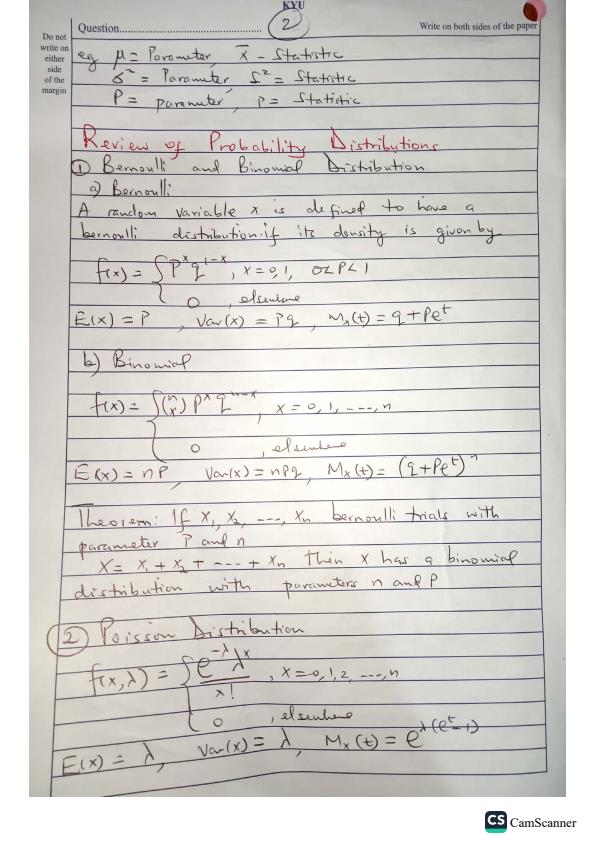 KYU
Question..................................................
2
Write on both sides of the paper
Do not
write on
either
side
of the
margin
eg μ = Parameter, x̄ - Statistic
σ² = Parameter S² = Statistic
P = parameter, p = Statistic
Review of Probability Distributions
① Bernoulli and Binomial Distribution
a) Bernoulli
A random variable x is defined to have a
bernoulli distribution if its density is given by
f(x) = { p^x q^{1-x} , x = 0, 1, 0<P<1
0 , elsewhere
E(x) = P , Var(x) = Pq , Mx(t) = q + Pe^t
b) Binomial
f(x) = { (n x) P^x q^{n-x} , x = 0, 1, ----, n
0 , elsewhere
E(x) = nP , Var(x) = nPq , Mx(t) = (q+Pe^t)^n
Theorem: If X₁, X₂, ---, Xn bernoulli trials with
parameter P and n
X = X₁ + X₂ + --- + Xn then X has a binomial
distribution with parameters n and P
② Poisson Distribution
f(x,λ) = { e^{-λ} λ^x / x! , x = 0, 1, 2, ---, n
0 , elsewhere
E(x) = λ, Var(x) = λ, Mx(t) = e^{λ(e^t-1)}
CS CamScanner